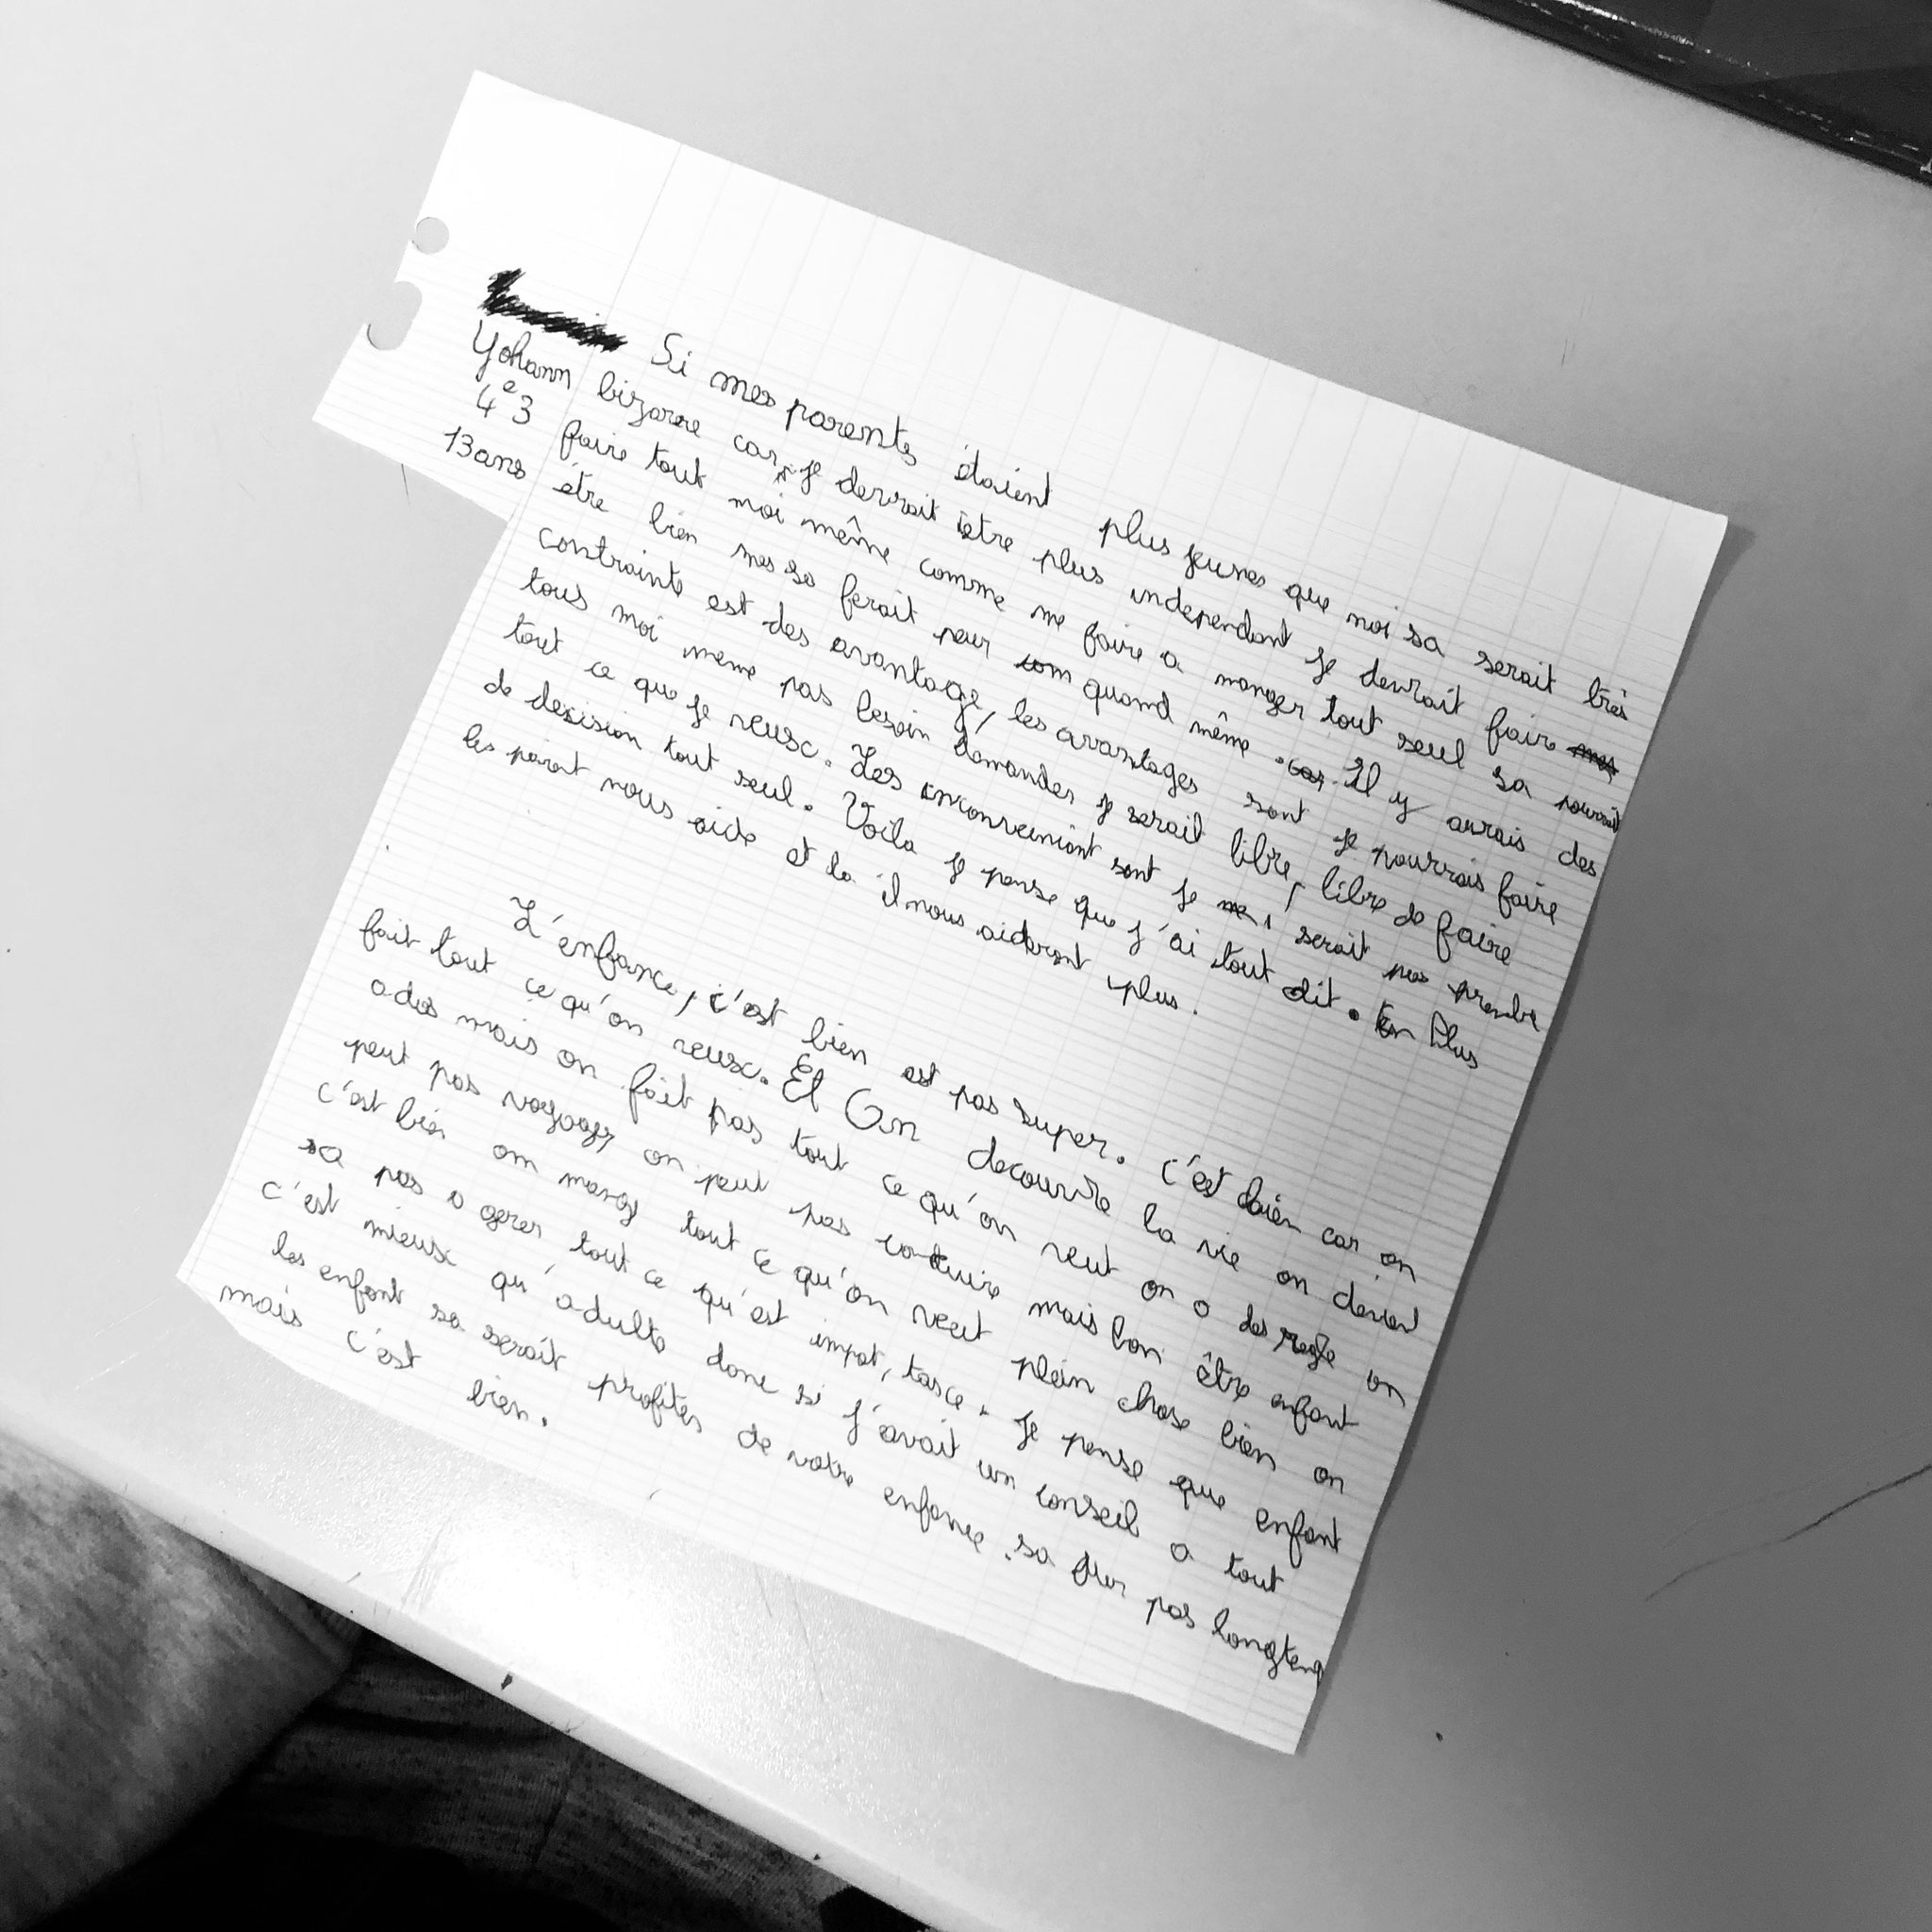 Si mes parents étaient plus jeunes que moi sa serait très
Yohann
bizarre car je devrait être plus independant je devrait faire
4e3
faire tout moi même comme me faire a manger tout seul sa pourrait
13 ans
être bien mes sa ferait peur quand même. Il y aurais des
contrainte est des avantage, les avantages sont je pourrais faire
tous moi meme pas besoin demander je serait libre, libre de faire
tout ce que je veux. Les inconveniant sont je serait pas prendre
de desision tout seul. Voila je pense que j'ai tout dit. En Plus
les parent nous aide et la il nous aideront plus.
L'enfance, c'est bien est pas super. C'est bien car on
fait tout ce qu'on veux. Et On decouvre la vie on devient
ados mais on fait pas tout ce qu'on veut on a des regle on
peut pas voyager on peut pas conduire mais bon être enfant
c'est bien on mange tout ce qu'on veut plein chose bien on
sa pas a gerer tout ce qu'est impot, taxe. Je pense que enfant
c'est mieux qu'adulte donc si j'avait un conseil a tout
les enfant sa serait profiter de votre enfance. sa dur pas longtemp
mais c'est bien.